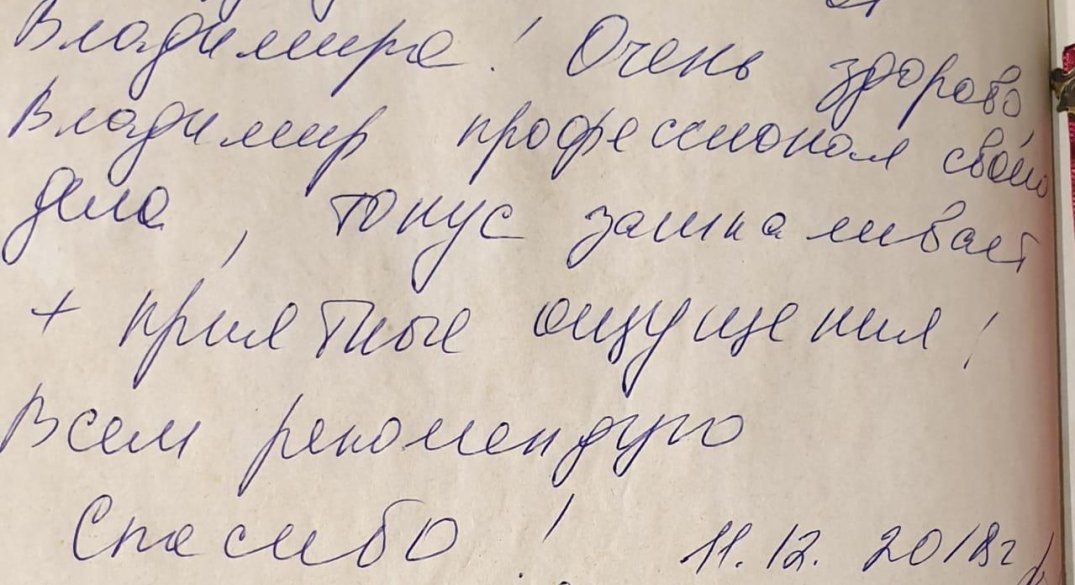 Владимира! Очень здорово,
Владимир профессионал своего
дела, тонус зашкаливает
+ приятные ощущения!
Всем рекомендую
Спасибо! 11.12.2018г